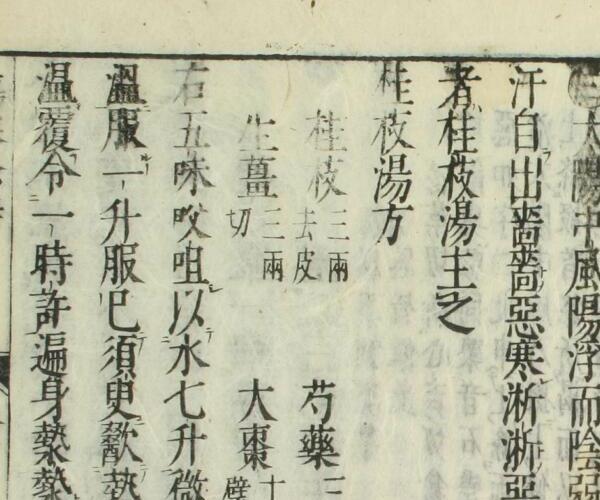 太陽中風陽浮而陰
汗自出嗇嗇惡寒淅淅惡
者桂枝湯主之
桂枝湯方
桂枝三兩去皮 芍藥三
生薑三兩切 大棗十擘
右五味㕮咀以水七升微
溫服一升服已須臾歠熱
溫覆令一時許遍身漐漐